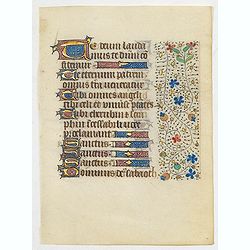 Te deum lauda
mus te dominū co
fitemur
Te eternum patrem
omnis terra veneratur
Tibi omnes angeli
tibi celi et universe potes
Tibi cherubin et sera
phin incessabili voce
proclamant
Sanctus
Sanctus
Sanctus
Dominus deus sabaoth